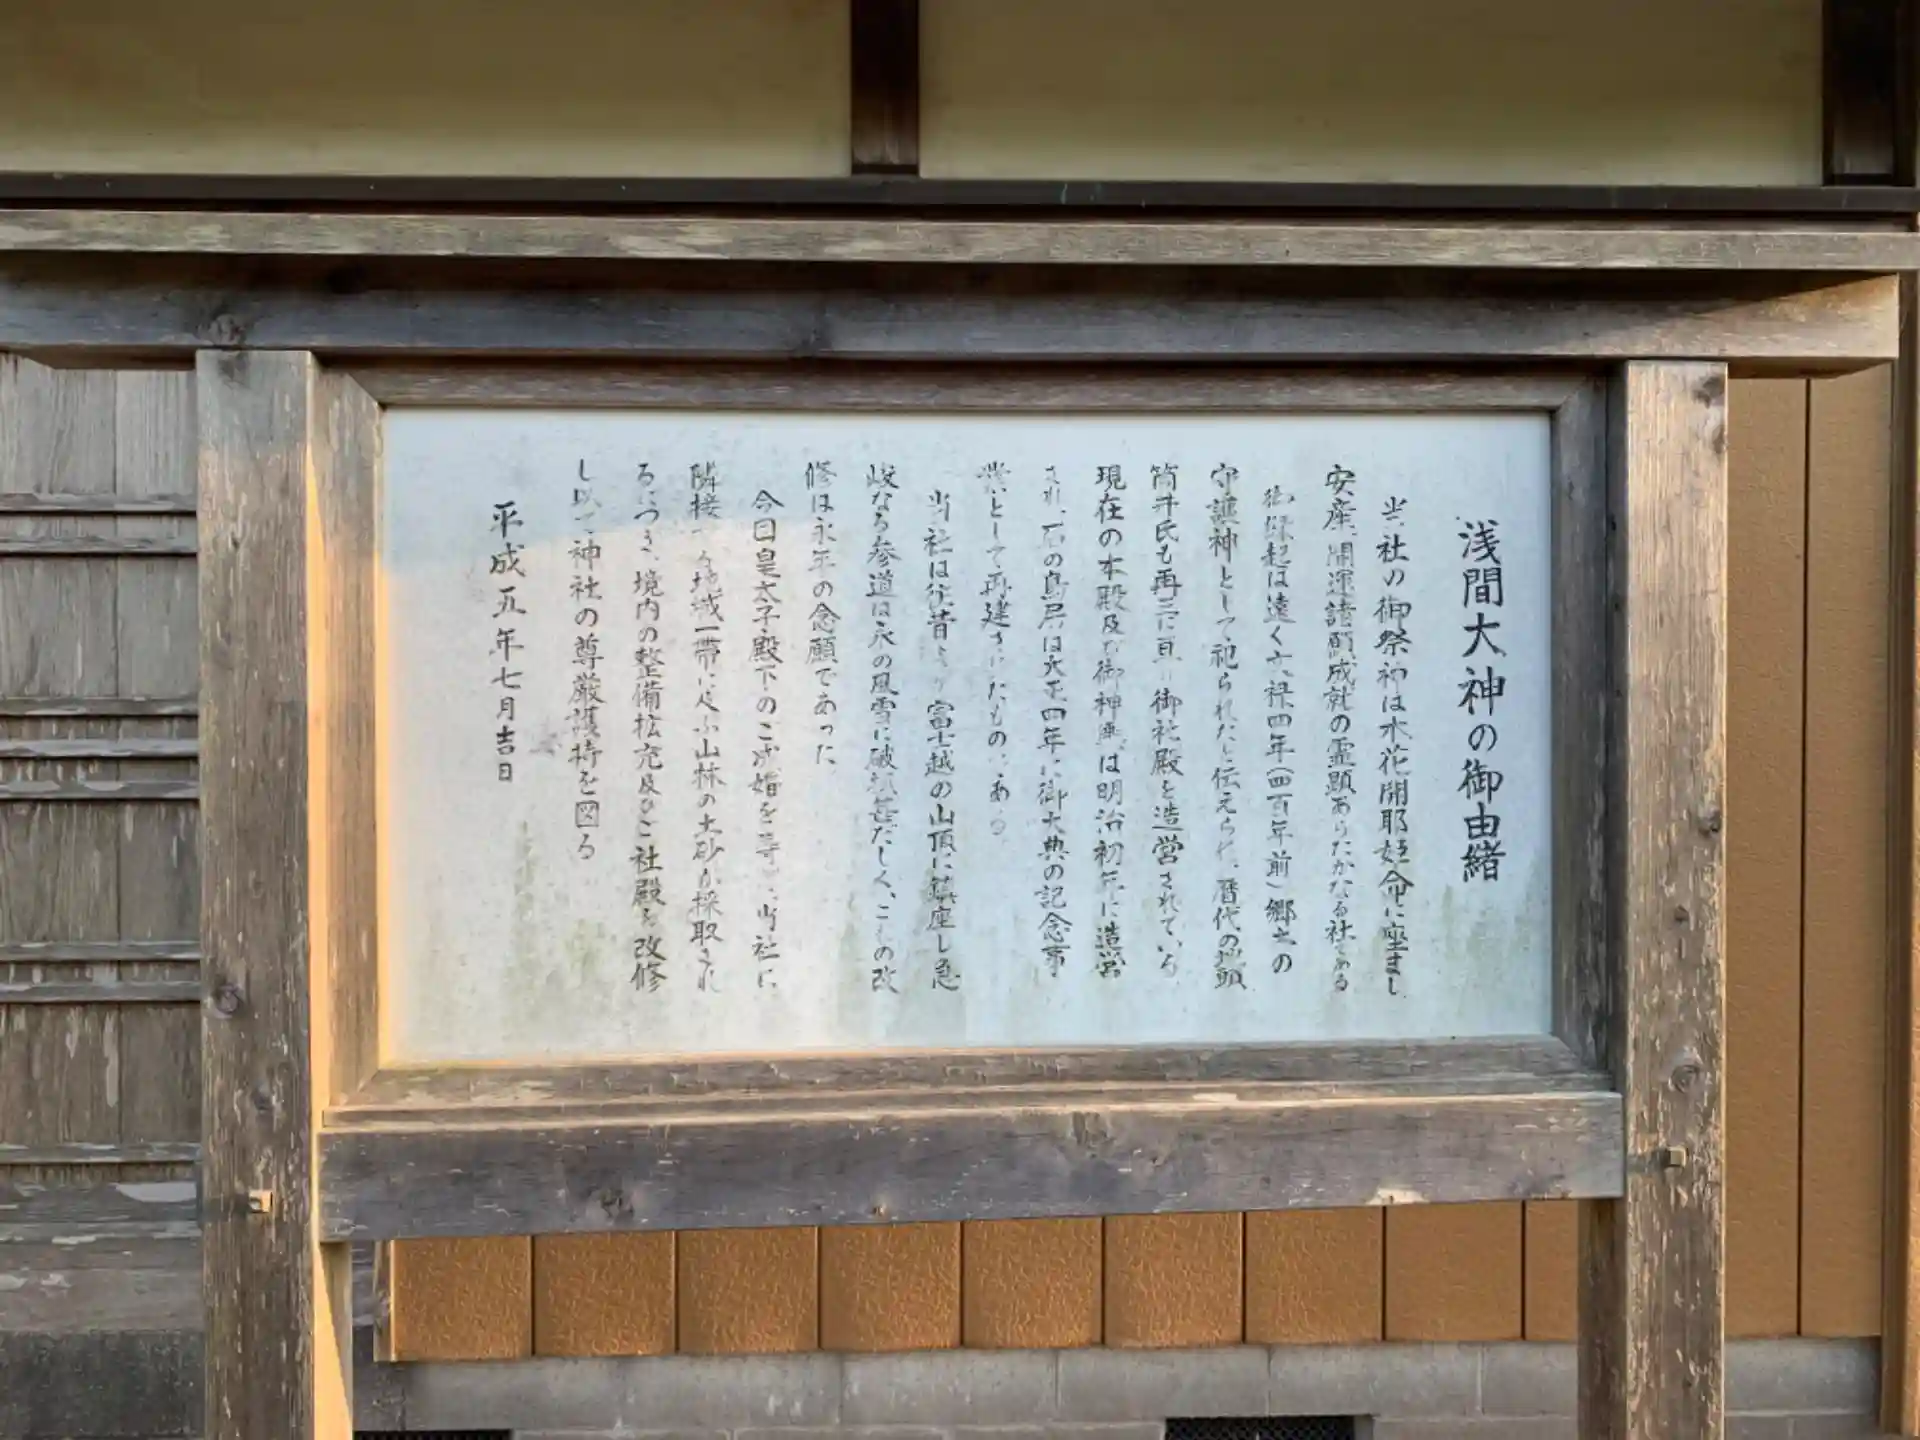 浅間大神の御由緒
当社の御祭神は木花開耶姫命に座まし
安産、開運諸願成就の霊顕あらたかなる社である
御縁起は遠く永禄四年(四百年前)郷土の
守護神として祀られたと伝えられ、暦代の地頭
筒井氏も再三に亘り御社殿を造営されている
現在の本殿及び御神輿は明治初年に造営
され、石の鳥居は大正四年に御大典の記念事
業として再建されたものである
当社は往昔より富士越の山頂に鎮座し急
峻なる参道は永の風雪に破損甚だしく、これの改
修は永年の念願であった
今回皇太子殿下のご成婚を等しく当社に
隣接する地域一帯に及ぶ山林の土砂が採取され
るにつき、境内の整備拡充及びご社殿を改修
し以て神社の尊厳護持を図る
平成五年七月吉日